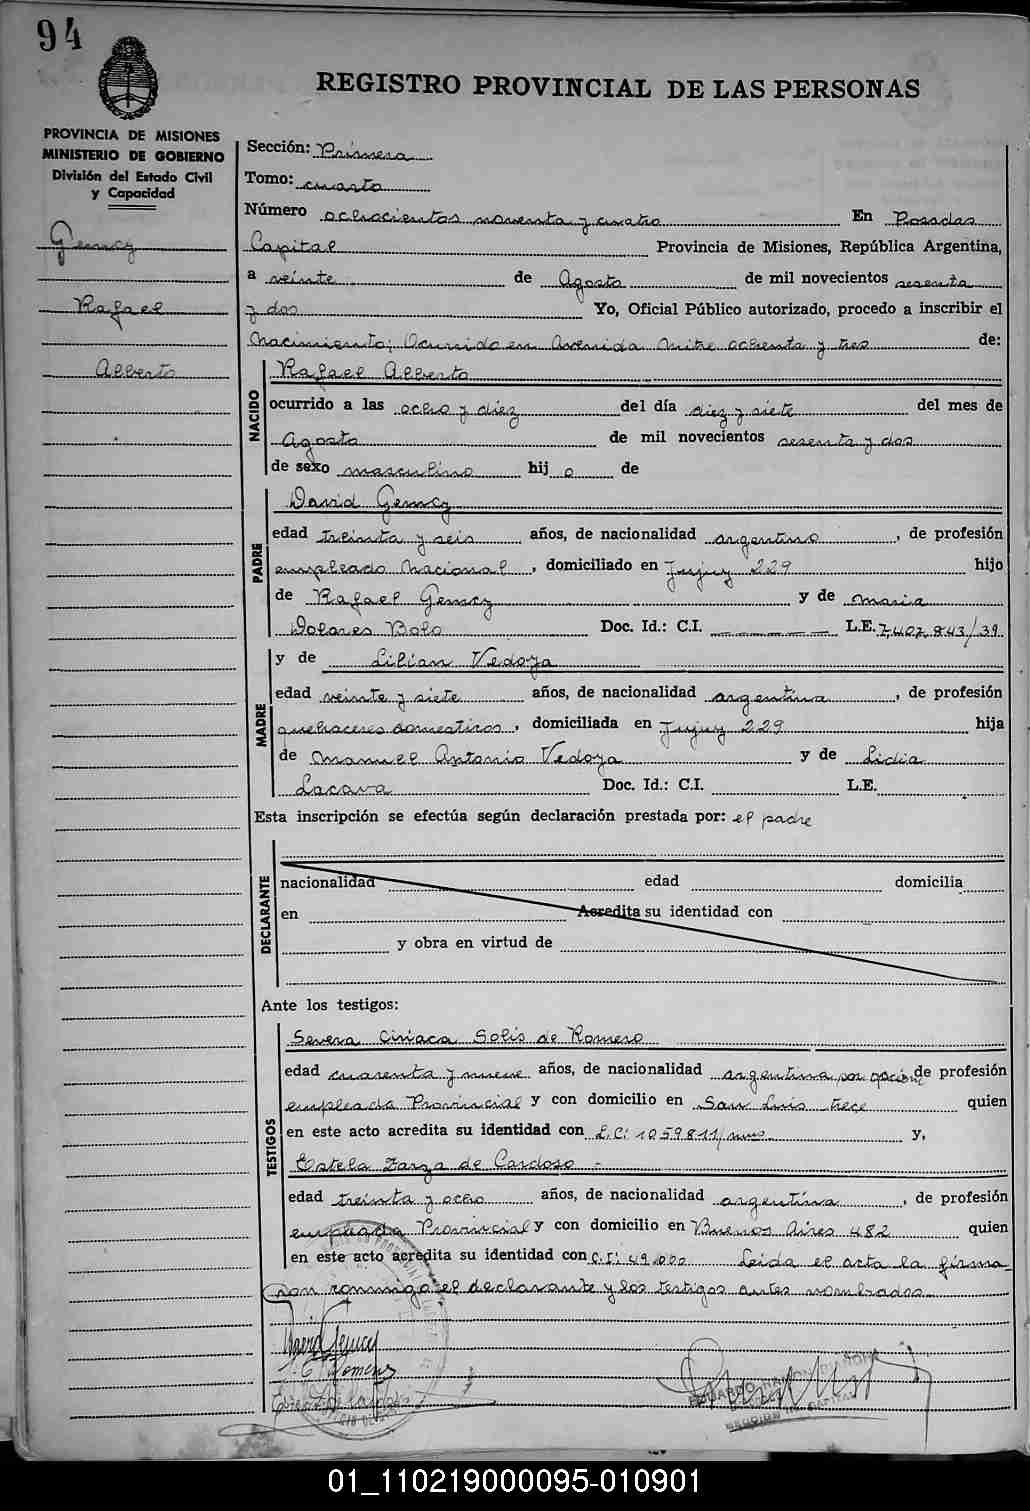 94
REGISTRO PROVINCIAL DE LAS PERSONAS
PROVINCIA DE MISIONES
MINISTERIO DE GOBIERNO
División del Estado Civil
y Capacidad
Gemcz
Rafael
Alberto
Sección: Primera
Tomo: cuarto
Número ochocientos noventa y cuatro En Posadas
Capital Provincia de Misiones, República Argentina,
a veinte de Agosto de mil novecientos sesenta
y dos Yo, Oficial Público autorizado, procedo a inscribir el
Nacimiento; Ocurrido en Avenida Mitre ochenta y tres de:
NACIDO
Rafael Alberto
ocurrido a las ocho y diez del día diez y siete del mes de
Agosto de mil novecientos sesenta y dos
de sexo masculino hij o de
PADRE
David Gemcz
edad treinta y seis años, de nacionalidad argentino, de profesión
empleado Nacional, domiciliado en Jujuy 229 hijo
de Rafael Gemcz y de Maria
Dolores Bolo Doc. Id.: C.I. — — — — — L.E. 7.407.843/39
MADRE
y de Lilian Vedoya
edad veinte y siete años, de nacionalidad argentina, de profesión
quehaceres domesticos, domiciliada en Jujuy 229 hija
de Manuel Antonio Vedoya y de Lidia
Lacava Doc. Id.: C.I. L.E.
Esta inscripción se efectúa según declaración prestada por: el padre
DECLARANTE
nacionalidad edad domicilia
en Acredita su identidad con
y obra en virtud de
Ante los testigos:
TESTIGOS
Severa Ciriaca Solis de Romero
edad cuarenta y nueve años, de nacionalidad argentina por opcion de profesión
empleada Provincial y con domicilio en San Luis trece quien
en este acto acredita su identidad con L.C: 1059811/ y,
Estela Zarza de Cardoso -
edad treinta y ocho años, de nacionalidad argentina, de profesión
empleada Provincial y con domicilio en Buenos Aires 482 quien
en este acto acredita su identidad con C.I: 49.000 Leida el acta la firma
con conmigo el declarante y los testigos antes nombrados
01_110219000095-010901